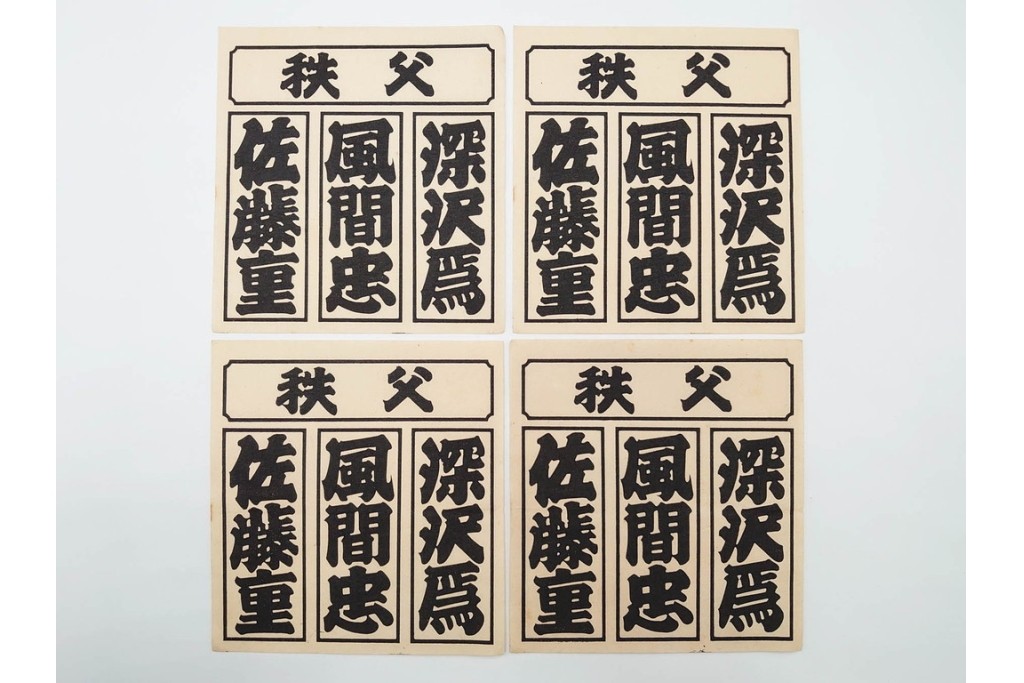 秩父
深沢爲
風間忠
佐藤重
秩父
深沢爲
風間忠
佐藤重
秩父
深沢爲
風間忠
佐藤重
秩父
深沢爲
風間忠
佐藤重